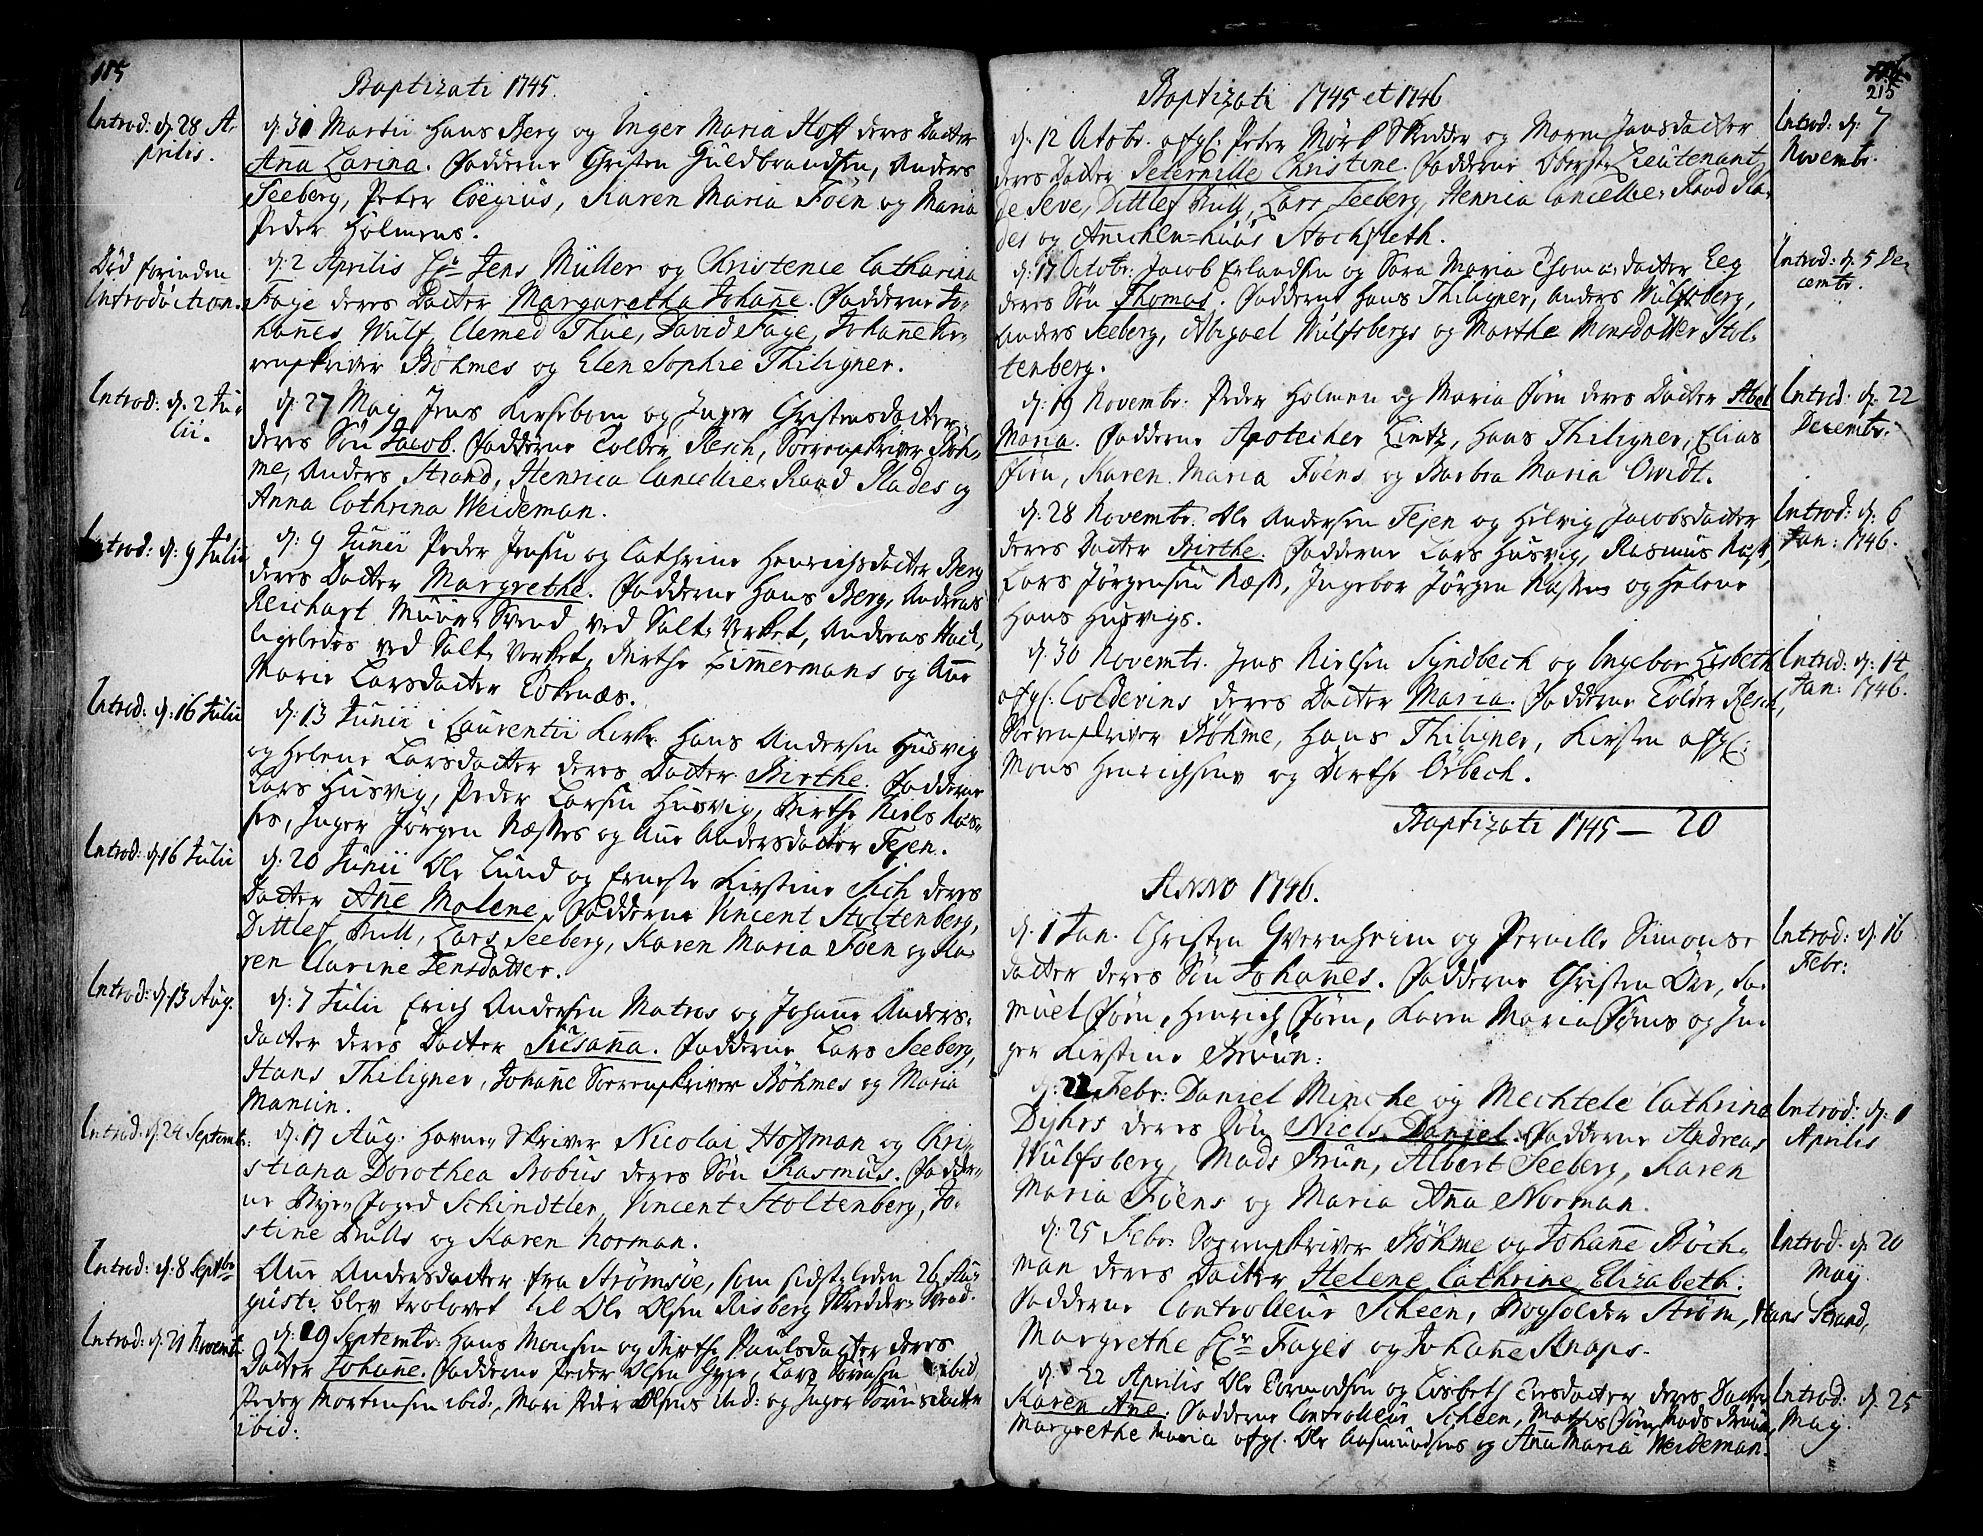 185
Baptizati 1745.
Introd: d. 28 A-
prilis.
d. 31 Martii Hans Berg og Inger Maria Hoff deres Datter
Aña Larina. Fadderne Christen Guldbrandsen, Anders
Seeberg, Peter Cöegius, Karen Maria Föen og Maria
Peder Holmens.
Död forinden
Introduction.
d. 2 Aprilis Hr. Jens Müller og Christence Catharina
Faye deres Datter Margaretha Johañe. Fadderne Jo-
hañes Wulf, Clemed Thue, David Faye, Johañe So-
renskriver Böhmes og Elen Sophie Thiligner.
Introd: d. 2 Ju-
lii.
d: 27 Maij Jens Kirseboom og Inger Christensdatter
deres Sön Jacob. Fadderne Tolder Resch, Sorenskriver Böh-
me, Anders Strand, Henrica Cancellie-Raad Blades og
Anna Cathrina Weideman.
Introd: d: 9 Julii
d: 9 Junii Peder Jensen og Cathrine Henrichsdatter Berg
deres Datter Margrethe. Fadderne Hans Berg, Andreas
Reichart Muur-Svend ved Salt-Verket, Andreas Hack,
ligeledes ved Salt-Verket, Birthe Zimmermans og Añe
Marie Larsdatter Toknæs.
Introd: d: 16 Julii
d: 13 Junii i Laurentii Kirke Hans Andersen Husvig
og Helene Larsdatter deres Datter Birthe. Fadderne
Lars Husvig, Peder Larsen Husvig, Birthe Niels
Inger Jörgen Næstes og Añe Andersdatter Tejen.
Introd: d. 16 Julii
d: 20 Junii Ole Lund og Erneste Kirstine Sich deres
Datter Añe Malene. Fadderne Vincent Stoltenberg,
Dittlef Bull, Lars Seeberg, Karen Maria Föen og Ka-
ren Clarine Jensdatter.
Introd: d. 13 Aug.
d: 7 Julii Erich Andersen Matros og Johañe Anders-
datter deres Datter Susaña. Fadderne Lars Seeberg,
Hans Thiligner, Johañe Sorenskriver Böhmes og Maria
Mancin.
Introd: d. 24 Septemb:
d: 17 Aug: Havne-Skriver Nicolai Hoffman og Chri-
stiana Dorothea Bobüs deres Sön Rasmus. Fadder-
ne Bye-Foged Schindtler, Vincent Stoltenberg, Ju-
stine Bulls og Karen Norman.
Introd: d: 8 Septbr
Añe Andersdatter fra Strömsöe, som sidstleden 26 Au-
gusti blev trolovet til Ole Olsen Risberg Skredder-Svend.
Introd: d. 21 Novemb:
d: 29 Septembr: Hans Monsen og Birthe Paulsdatter deres
Datter Johañe. Fadderne Peder Olsen Gype, Lars Sörensen ibid,
Peder Mortensen ibid:, Mari Peder Olsens ibid: og Inger Sörensdatter
ibid:
215
Baptizati 1745 et 1746
d: 12 Octobr. afgl: Peter Mörck Skredder og Maren Jansdatter
deres Datter Peternille Christine. Fadderne Oberst-Lieutenant
de Seve, Dittlef Bull, Lars Seeberg, Henrica Cancellie-Raad Bla-
des og Anichen Stochfleth.
Introd: d: 7
Novembr.
d: 17 Octobr: Jacob Erlandsen og Sara Maria Thomasdatter Eeg
deres Sön Thomas. Fadderne Hans Thiligner, Anders Wulfsberg,
Anders Seeberg, Abigael Wulfsbergs og Marthe Monsdatter Stol-
tenberg.
Introd: d. 5 De-
cembr.
d: 19 Novembr: Peder Holmen og Maria Föen deres Datter Abel
Maria. Fadderne Apotecher Lintz, Hans Thiligner, Elias
Föen, Karen Maria Föens og Barbra Maria Qvidt.
Introd: d: 22
Decembr.
d: 28 Novembr. Ole Andersen Tejen og Helvig Jacobsdatter
deres Datter Birthe. Fadderne Lars Husvig, Rasmus
Lars Jörgensen Næst, Ingebor Jörgen Næstes og Helene
Hans Husvigs.
Introd: d: 6
Jan: 1746.
d: 30 Novembr. Jens Nielsen Syndbech og Ingebor Lisbeth
afgl: Coldevins deres Datter Maria. Fadderne Tolder Resch,
Sorenskriver Böhme, Hans Thiligner, Kirsten afgl:
Mons Henrichsens og Dorthe Örbech.
Introd: d: 14
Jan: 1746.
Baptizati 1745 — 20
Anno 1746.
d. 1 Jan. Christen Qvernheim og Pernille Simons-
datter deres Sön Johañes. Fadderne Christen Öre, Sa-
muel Föen, Henrich Föen, Karen Maria Föens og In-
ger Kirstine Bruun:
Introd: d: 16
Febr:
d: 22 Febr: Daniel Minche og Mechtele Cathrine
Dyhrs deres Sön Niels Daniel. Fadderne Andreas
Wulfsberg, Mads Brun, Albert Seeberg, Karen
Maria Föens og Maria Aña Norman.
Introd: d: 1
Aprilis
d: 25 Febr: Sorenskriver Böhme og Johañe Böch-
man deres Datter Helene Cathrine Elizabeth:
Fadderne Controlleur Scheen, Bogholder Ström, Hans Strand,
Margrethe Hr. Fayes og Johañe Knaps.
Introd: d. 20
Maij.
d. 22 Aprilis Ole Tormodsen og Lisbeth Iversdatter deres Datter
Karen Añe. Fadderne Controlleur Scheen, Mathis Föen, Mads Bruun,
Margrethe Maria afgl. Ole Aasmundsens og Aña Maria Weideman.
Introd: d. 25
Maij.